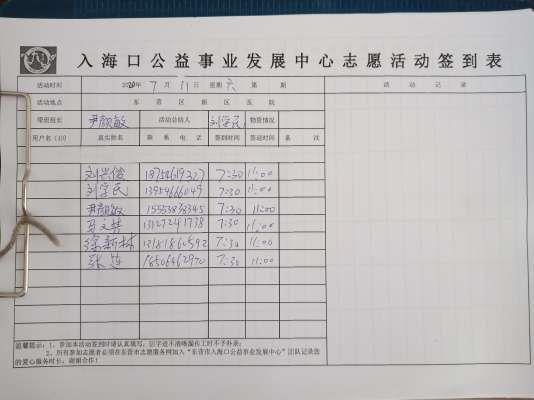 入海口公益事业发展中心志愿活动签到表
活动时间 2020年 7月 11日 星期六 第 期 活 动 记 录
活动地点 东 营 区 新 区 医 院
带班组长 尹颜敏 活动总结人 刘学民 物资情况
用户名(ID) 真实姓名 联 系 电 话 签到时间 签退时间 备 注
刘兴俊 7:30 11:00
刘学民 13954666049 7:30 11:00
尹颜敏 15553838345 7:30 11:00
马文梦 13127241738 7:30 11:00
徐新林 13181860592 7:30 11:00
张莲 16506462970 7:30 11:00
温馨提示:1、参加本活动签到时请认真填写,因字迹不清晰漏传工时不予补录;
2、所有参加志愿者必须在东营市志愿服务网加入“东营市入海口公益事业发展中心”团队记录您
的爱心服务时长,谢谢合作!